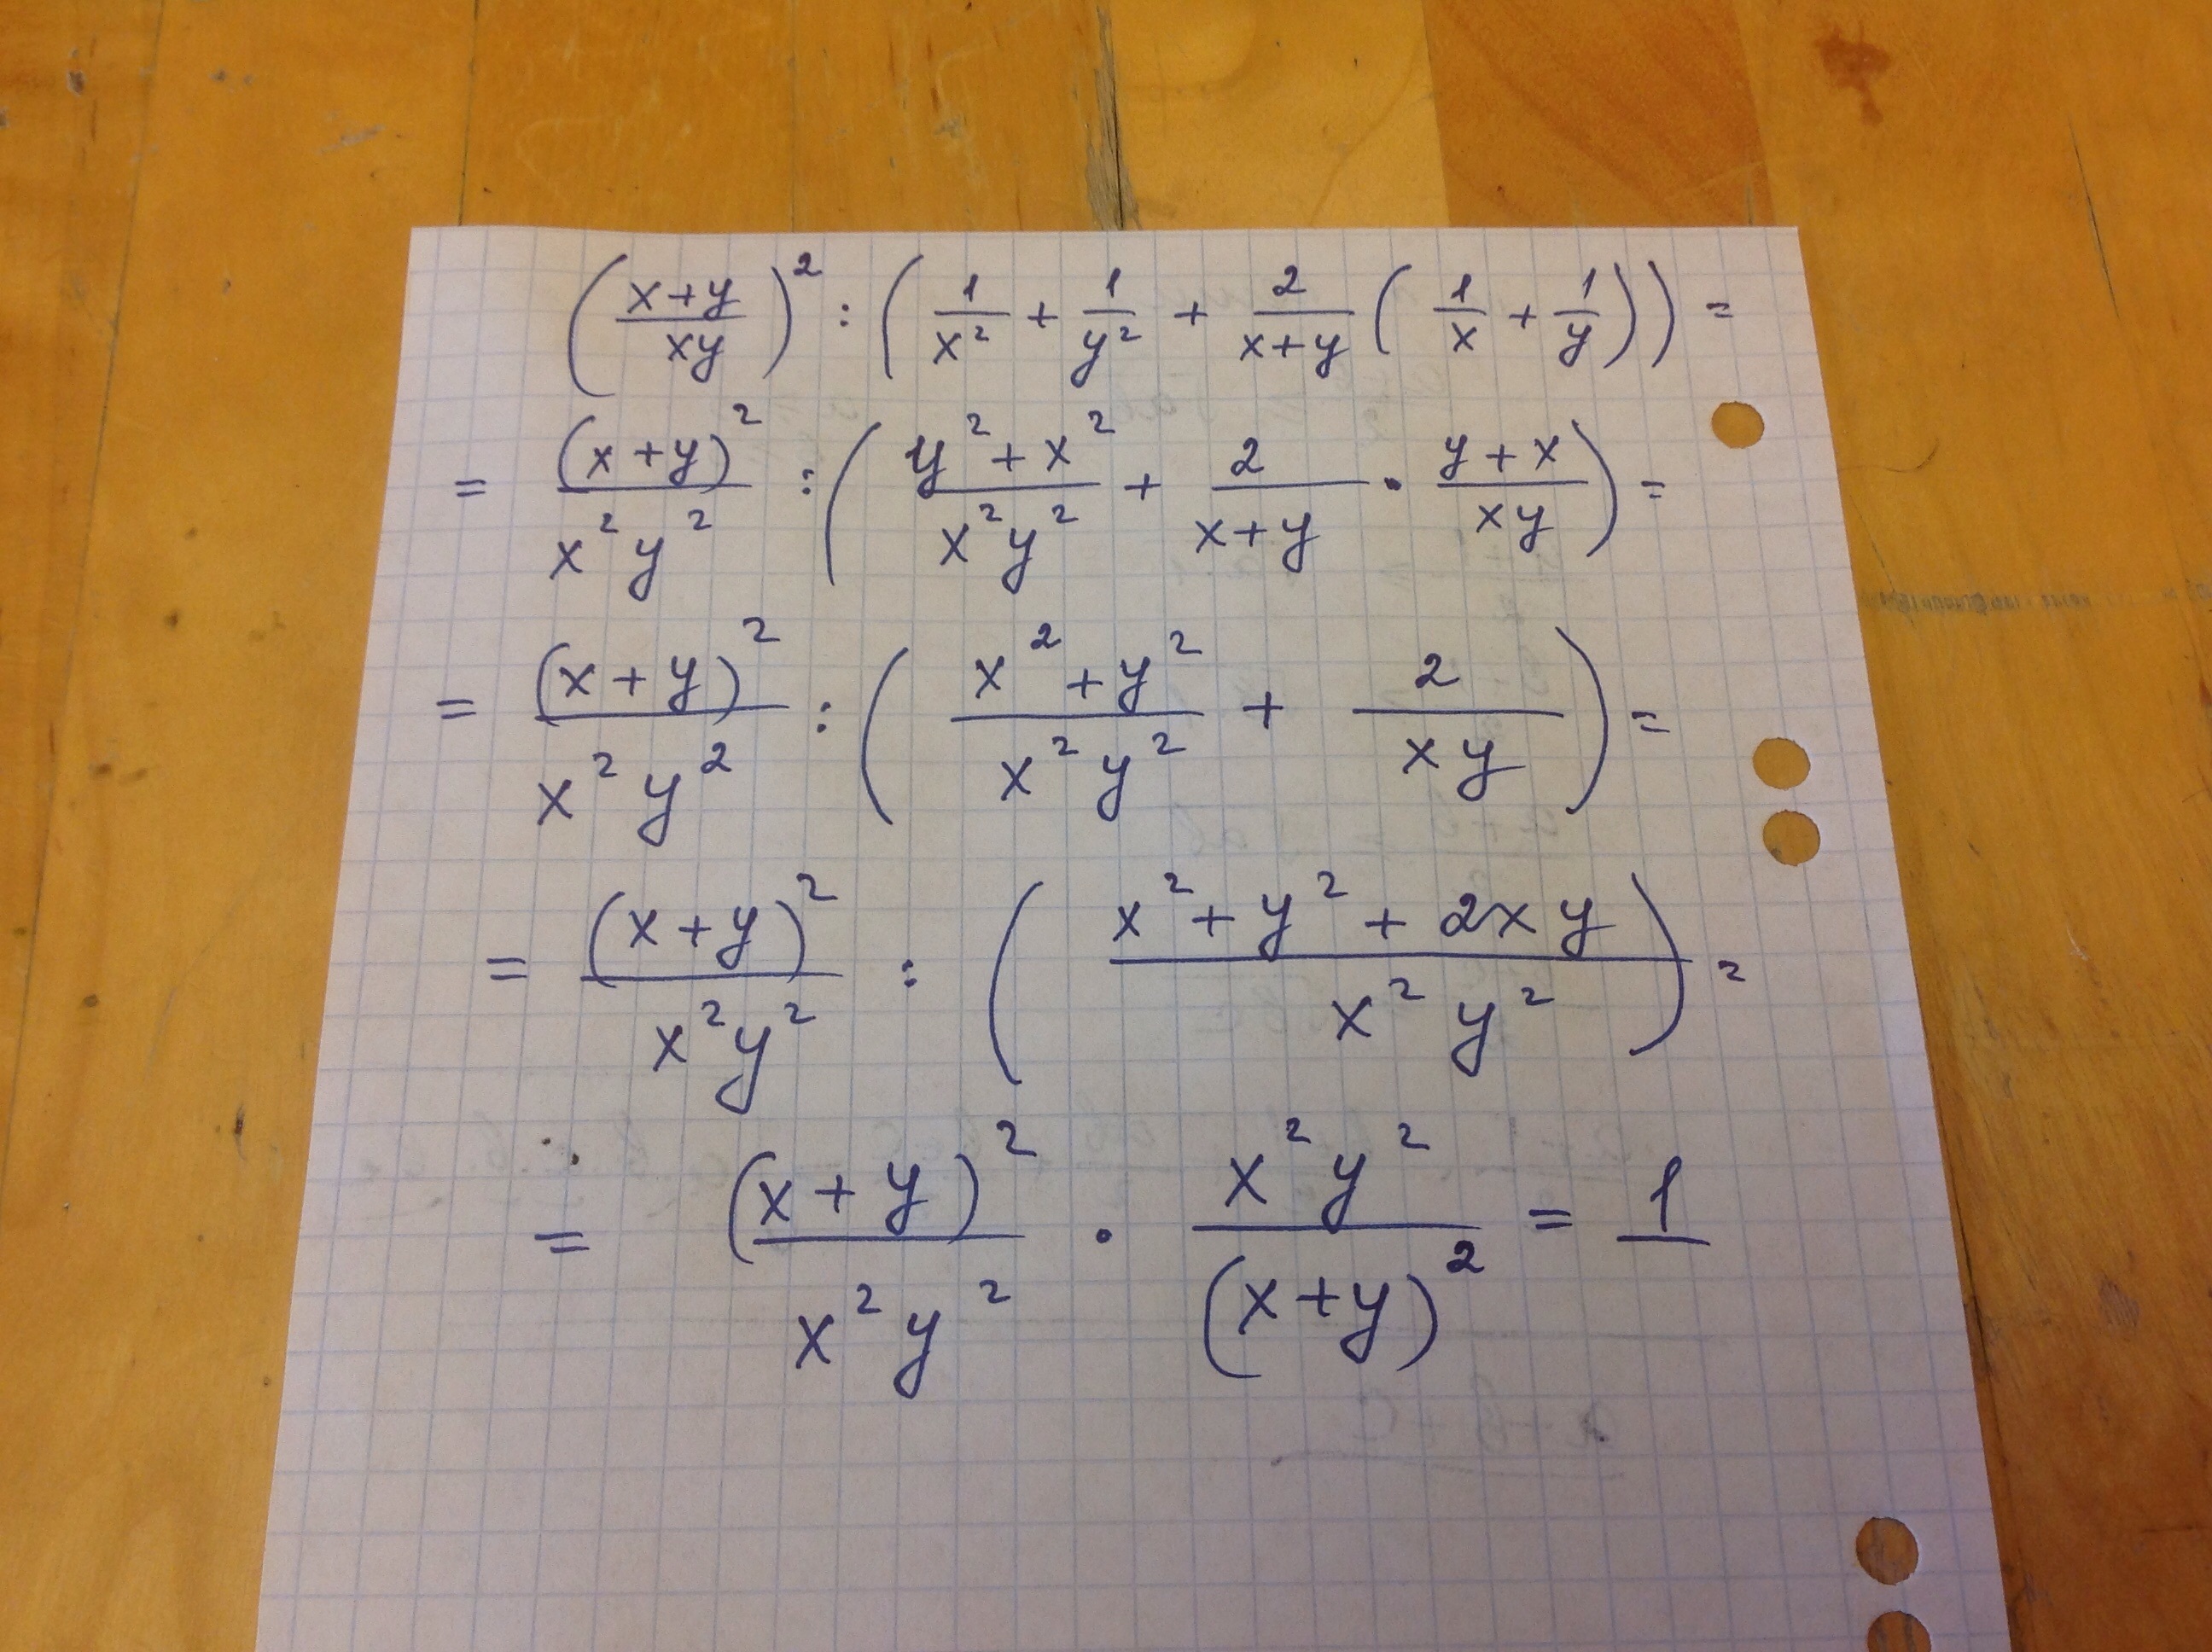 (x+y/xy)² : (1/x² + 1/y² + 2/x+y (1/x + 1/y)) =
= (x+y)²/x²y² : (y²+x²/x²y² + 2/x+y · y+x/xy) =
= (x+y)²/x²y² : (x²+y²/x²y² + 2/xy) =
= (x+y)²/x²y² : (x²+y²+2xy/x²y²) =
= (x+y)²/x²y² · x²y²/(x+y)² = 1